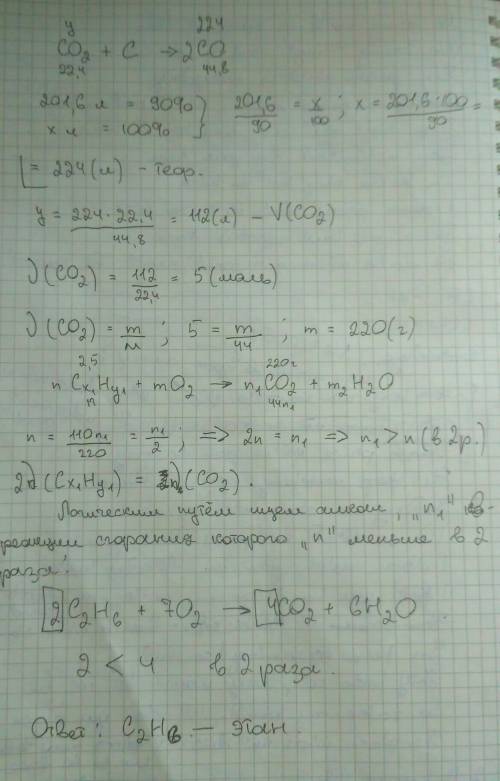 y 224
CO2 + C → 2CO
22,4 44,8
201,6 л = 90% } 201,6/90 = x/100 ; x = 201,6·100/90 =
x л = 100%
= 224(л) - теор.
y = 224·22,4/44,8 = 112(л) - V(CO2)
ν(CO2) = 112/22,4 = 5(моль)
ν(CO2) = m/M ; 5 = m/44 ; m = 220(г)
2,5 220г
n Cx1Hy1 + mO2 → n1CO2 + m2H2O
n 44n1
n = 110n1/220 = n1/2 ; => 2n = n1 => n1 > n (в 2р.)
2ν(Cx1Hy1) = ν(CO2).
Логическим путём ищем алкан, "n1" в
реакции сгорания которого "n" меньше в 2
раза.
2C2H6 + 7O2 → 4CO2 + 6H2O
2 < 4 в 2 раза.
Ответ: C2H6 — этан.